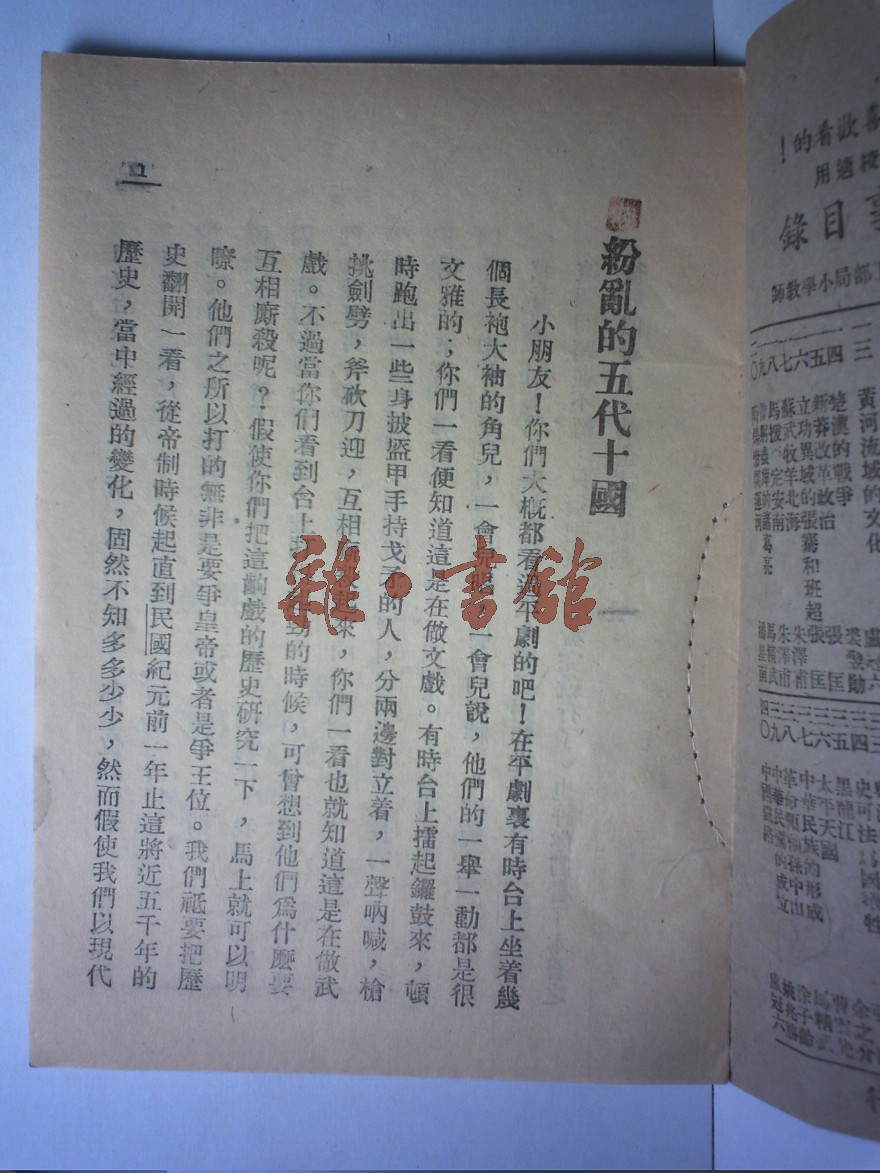 紛亂的五代十國
小朋友！你們大概都看過平劇的吧！在平劇裏有時台上坐着幾
個長袍大袖的角兒，一會兒唱，一會兒說，他們的一舉一動都是很
文雅的；你們一看便知道這是在做文戲。有時台上擂起鑼鼓來，頓
時跑出一些身披盔甲手持戈矛的人，分兩邊對立着，一聲吶喊，槍
挑劍劈，斧砍刀迎，互相起來，你們一看也就知道這是在做武
戲。不過當你們看到台上勁的時候，可曾想到他們爲什麼要
互相廝殺呢？假使你們把這齣戲的歷史研究一下，馬上就可以明
瞭。他們之所以打的無非是要爭皇帝或者是爭王位。我們祇要把歷
史翻開一看，從帝制時候起直到民國紀元前一年止這將近五千年的
歷史，當中經過的變化，固然不知多多少少，然而假使我們以現代
雜·書館
喜歡看的！
校適用
目錄
部局小學教師
黃河流域的文化
楚漢的戰爭
新莽改革政治
立功異域的張騫和班超
蘇武牧羊北海
馬援定安南
諸葛亮
張匡
張匡
朱澤甫
朱澤甫
馬精武
黑龍江
太平天國
中華民族的形成
革命領袖孫中山
中華民國的成立
馬精武
徐子
盧冠六